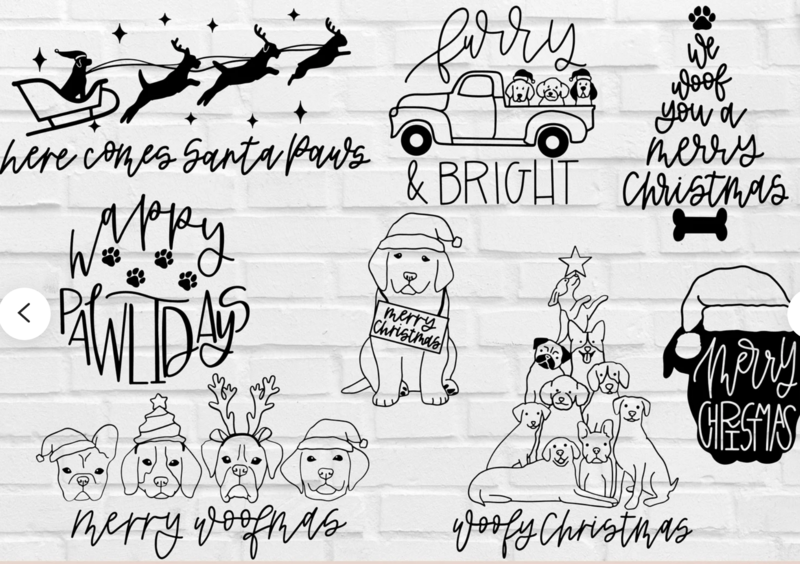 here comes Santa Paws
furry
& BRIGHT
we
woof
you a
merry
Christmas
Happy
PAWLIDAYS
merry
Christmas
Merry
CHRISTMAS
merry woofmas
woofy Christmas